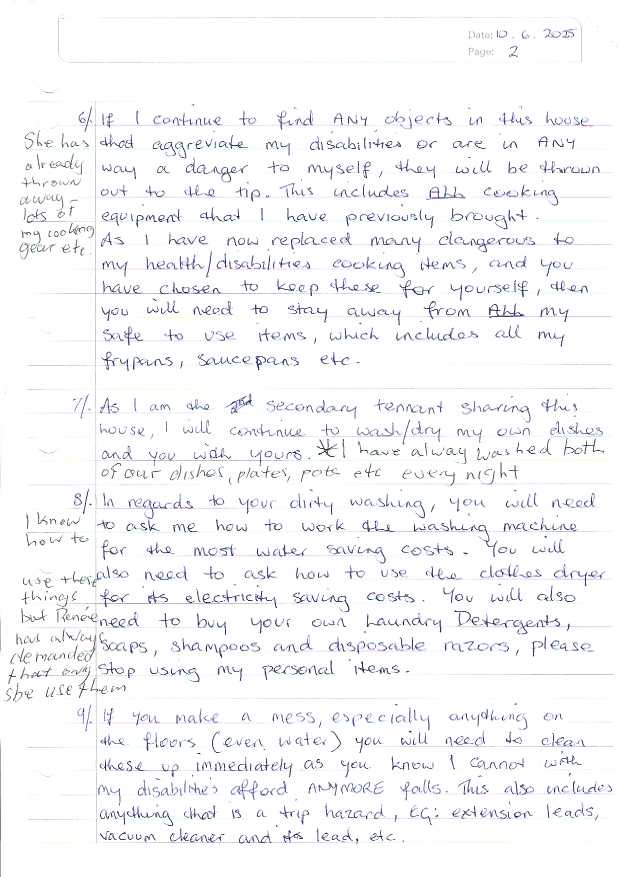 Date: 10. 6. 2025
Page: 2
6/. If I continue to find ANY objects in this house
that aggreviate my disabilities or are in ANY
way a danger to myself, they will be thrown
out to the tip. This includes ALL cooking
equipment that I have previously brought.
As I have now replaced many dangerous to
my health/disabilities cooking items, and you
have chosen to keep these for yourself, then
you will need to stay away from ALL my
safe to use items, which includes all my
frypans, saucepans etc.
She has
already
thrown
away -
lots of
my cooking
gear etc.
7/. As I am the 2nd secondary tennant sharing this
house, I will continue to wash/dry my own dishes
and you with yours. * I have alway washed both
of our dishes, plates, pots etc every night
8/. In regards to your dirty washing, you will need
to ask me how to work the washing machine
for the most water saving costs. You will
also need to ask how to use the clothes dryer
for its electricity saving costs. You will also
need to buy your own Laundry Detergents,
Soaps, shampoos and disposable razors, please
stop using my personal items.
I know
how to
use these
things
but Renée
had always
demanded
that only
she use them
9/. If you make a mess, especially anything on
the floors (even water) you will need to clean
these up immediately as you know I cannot with
my disabilitie's afford ANYMORE falls. This also includes
anything that is a trip hazard, EG: extension leads,
vacuum cleaner and its lead, etc.